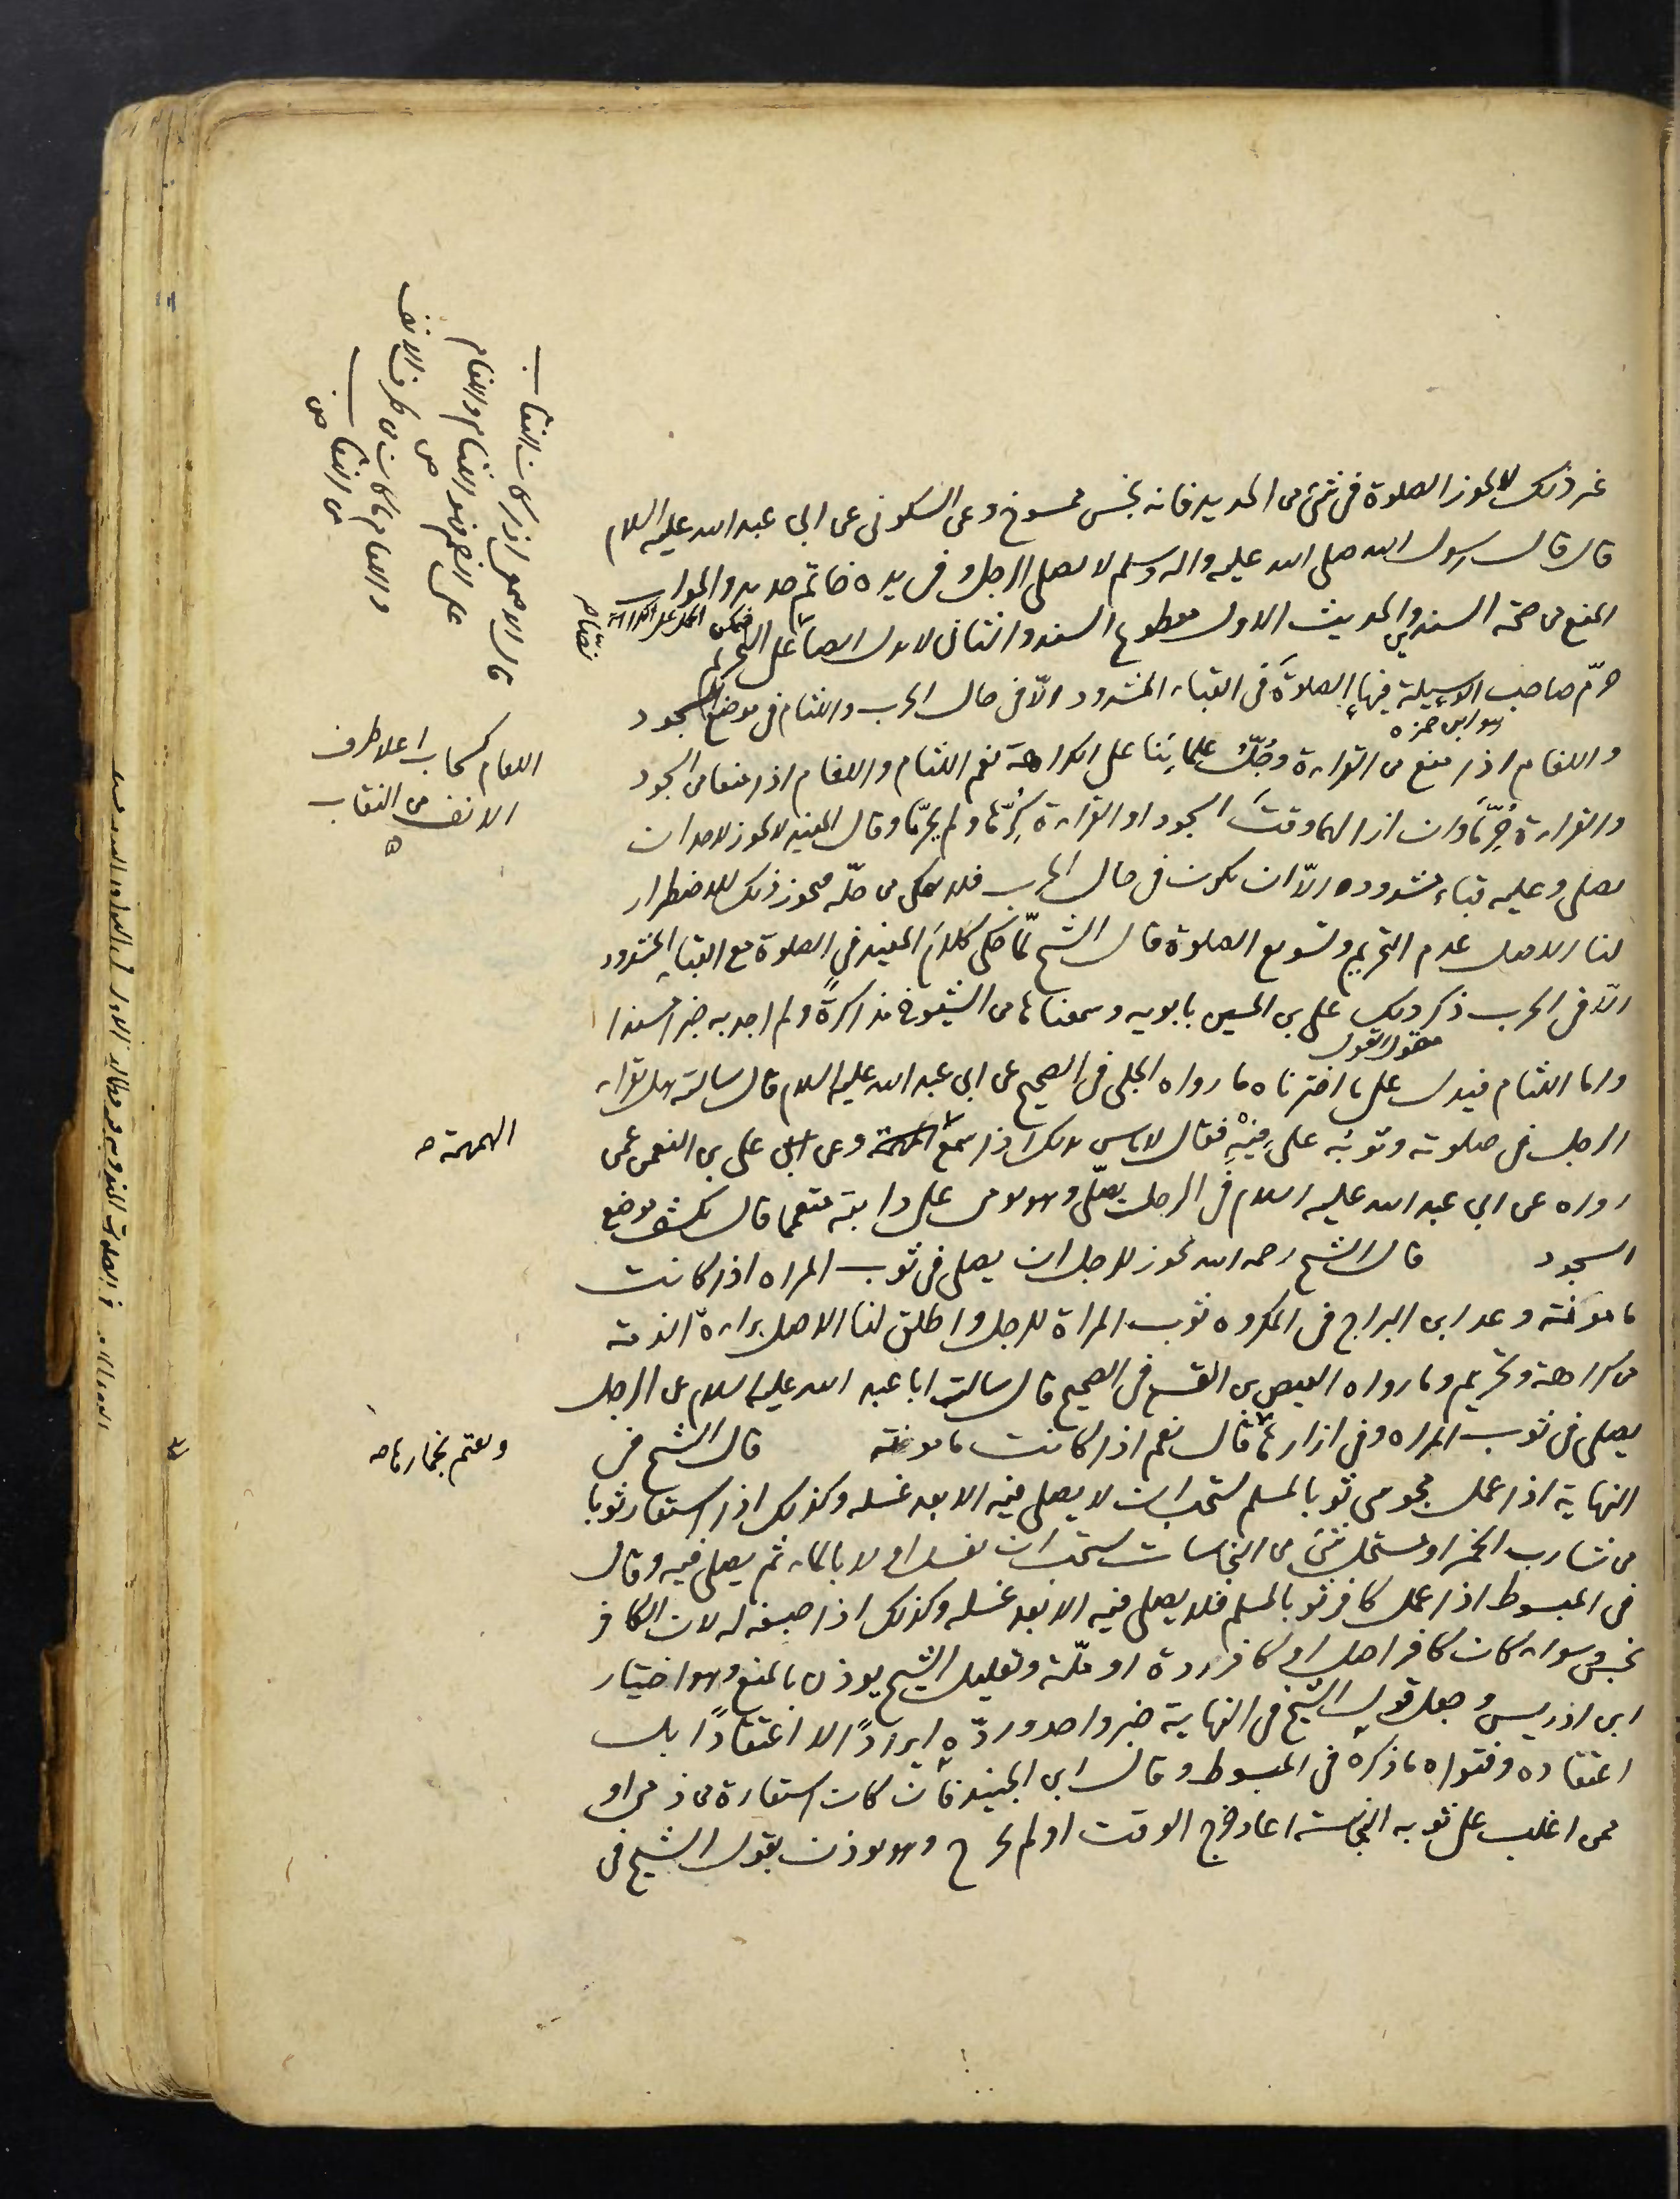 غير ذلك لا يجوز الصلوة في شئ من الحديد فانه نجس ممسوخ وعن السكوني عن ابي عبد الله عليه السلام
قال قال رسول الله صلى الله عليه واله وسلم لا يصلى الرجل و في يده خاتم حديد والجواب
المنع من صحة السندين والحديث الاول مقطوع السند والثاني لا يدل ايضا على التحريم
فيمكن الحمل على الكراهة
حرّم صاحب الوسيلة فيها الصلوةَ في القباء المشدود الّا في حال الحرب واللثام في موضع السجود
وهو ابن حمزه
واللفام اذا منع من القراءة وجُلّ علمائنا على الكراهة نعم اللثام واللفام اذا منعا من السجود
والقراءة حُرّما وان ازالهما وقتَ السجود او القراءة كُرّها ولم يحرّما وقال المفيد لا يجوز لاحد ان
يصلى وعليه قباء مشدود الّا ان يكون في حال الحرب فلا يمكن من حلّه فيجوز ذلك للاضطرار
لنا الاصل عدم التحريم وتسويغ الصلوة قال الشيخ لمّا حكى كلامَ المفيد في الصلوة مع القباء المشدود
الّا في الحرب ذكر ذلك على بن الحسين بابويه وسمعناها من الشيوخ مذاكرةً ولم اجد به خبرا مسندا
مقول القول
واما اللثام فيدل على ما اخترناه ما رواه الحلبى في الصحيح عن ابي عبد الله عليه السلام قال سالته هل يقرا
الرجل في صلوته وثوبُه على فِيهِ فقال لا باس بذلك اذا سمع الهمهمة وعن على بن النعمن عمن
رواه عن ابي عبد الله عليه السلام في الرجل يصلّى وهو يومى على دابته متعمما قال يكشف موضع
السجود قال الشيخ رحمه الله يجوز للرجل ان يصلى في ثوب المراه اذا كانت
مامونة وعد ابن البراج في المكروه ثوب المراة للرجل واطلق لنا الاصل براءة الذمة
من كراهة وتحريم وما رواه العيص بن القسم في الصحيح قال سالت ابا عبد الله عليه السلام عن الرجل
يصلى في ثوب المراه وفي ازارها قال نعم اذا كانت مامونة قال الشيخ في
النهاية اذا عمل مجوسى ثوبا لمسلم يستحب ان لا يصلى فيه الا بعد غسله وكذلك اذا استعار ثوبا
من شارب الخمر او مستحل شئ من النجاسات يستحب ان يغسل اولا بالماء ثم يصلى فيه وقال
في المبسوط اذا عمل كافر ثوبا لمسلم فلا يصلى فيه الا بعد غسله وكذلك اذا صبغه له لان الكافر
نجس وسواء كان كافر اصل او كافر ردة او ملّة وتعليل الشيخ يوذن بالمنع وهو اختيار
ابن ادريس وجعل قول الشيخ في النهاية خبر واحد اوردّه ايرادًا لا اعتقادًا بل
اعتقاده وفتواه ما ذكره في المبسوط وقال ابن الجنيد فان كان استعارة من ذمى او
ممن اغلب على ثوبه النجاسة اعاد خرج الوقت او لم يخرج وهو يوذن بقول الشيخ في
قال الاصمعى اذا كان النقاب
على الفم فهو اللثام واللفام
ص
واللفام ما كان من طرف الانف
من النقاب
ص
اللفام كحاب اعلا طرف
الانف من النقاب
الهمهمة ص
ويعتم بخمارها ص